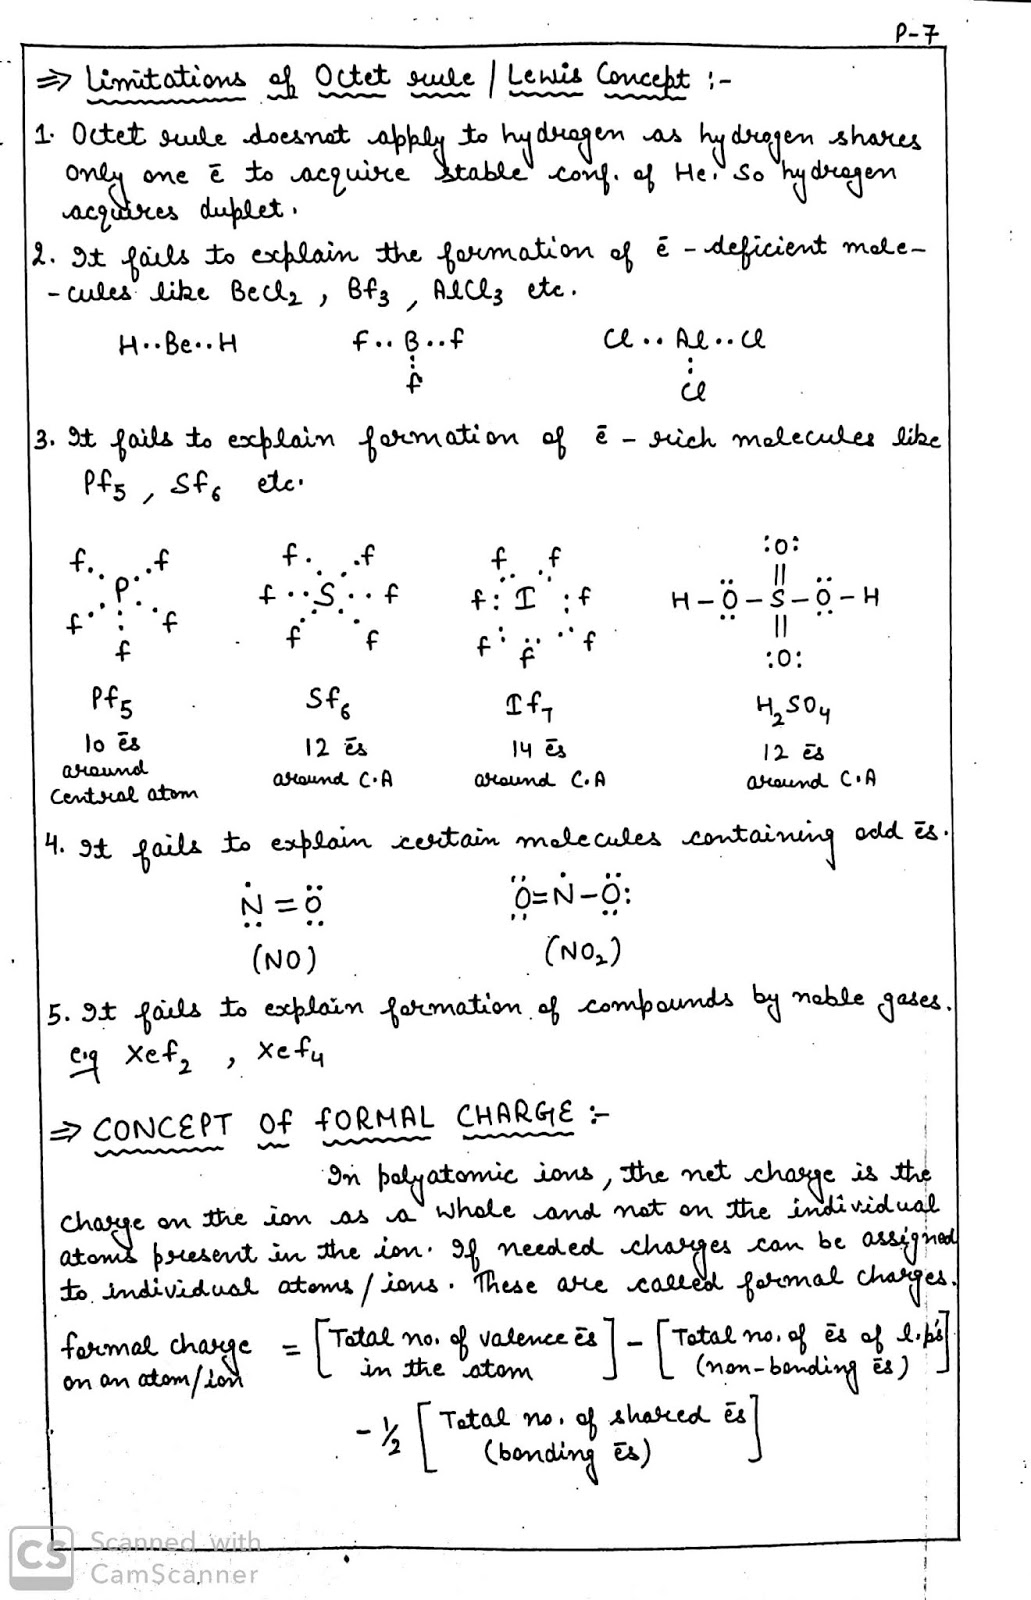 P-7
⇒ Limitations of Octet rule / Lewis Concept :-
1. Octet rule doesnot apply to hydrogen as hydrogen shares
only one ē to acquire stable conf. of He. So hydrogen
acquires duplet.
2. It fails to explain the formation of ē - deficient mole-
- cules like BeCl₂ , Bf₃ , AlCl₃ etc.
H··Be··H f··B··f Cl··Al··Cl
f Cl
3. It fails to explain formation of ē - rich molecules like
Pf₅ , Sf₆ etc.
f f f f f f :O:
P f S f f I f H - O - S - O - H
f f f f f f f
f f :O:
Pf₅ Sf₆ If₇ H₂SO₄
10 ēs 12 ēs 14 ēs 12 ēs
around around C.A around C.A around C.A
Central atom
4. It fails to explain certain molecules containing odd ēs.
N = O O = N - O:
(NO) (NO₂)
5. It fails to explain formation of compounds by noble gases.
e.g Xef₂ , Xef₄
⇒ CONCEPT Of fORMAL CHARGE :-
In polyatomic ions, the net charge is the
charge on the ion as a whole and not on the individual
atoms present in the ion. If needed charges can be assigned
to individual atoms / ions. These are called formal charges.
formal charge = [Total no. of valence ēs] - [Total no. of ēs of l.p's]
on an atom/ion in the atom (non-bonding ēs)
- ½ [Total no. of shared ēs]
(bonding ēs)
CS Scanned with
CamScanner